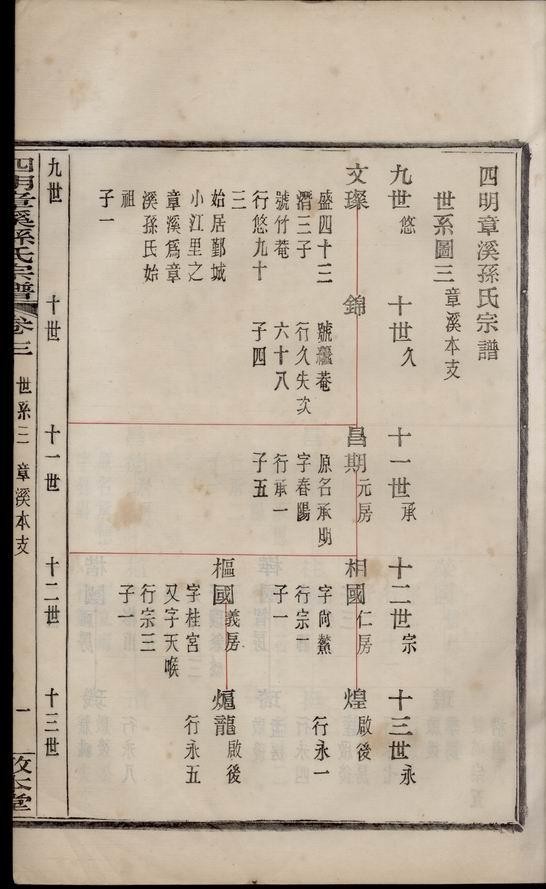 四明章溪孫氏宗譜
世系圖三 章溪本支
九世 悠
十世 久
十一世 承
十二世 宗
十三世 永
文璨
盛四十三
濳三子
號竹菴
行悠九十
三
始居鄞城
小江里之
章溪爲章
溪孫氏始
祖
子一
錦
號
菴
行久失次
六十八
子四
昌期 元房
原名承期
字春陽
行承一
子五
相國 仁房
字尙鰲
行宗一
子一
煌 啟後
行永一
樞國 義房
字桂宮
又字天喉
行宗三
子一
爊龍 啟後
行永五
九世
十世
十一世
十二世
十三世
四明章溪孫氏宗譜 卷三 世系三 章溪本支 一